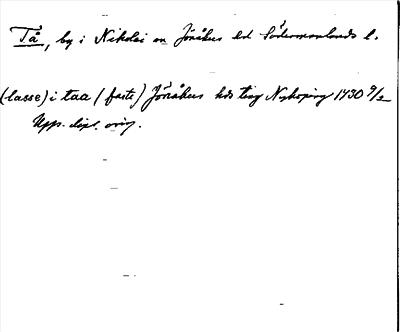 Tå, by i Nikolai sn Jönåkers hd Södermanlands l.
(lasse) i taa (faste) Jönåkers hds ting Nyköping 1430 9/2
Upps. dipl. orig.